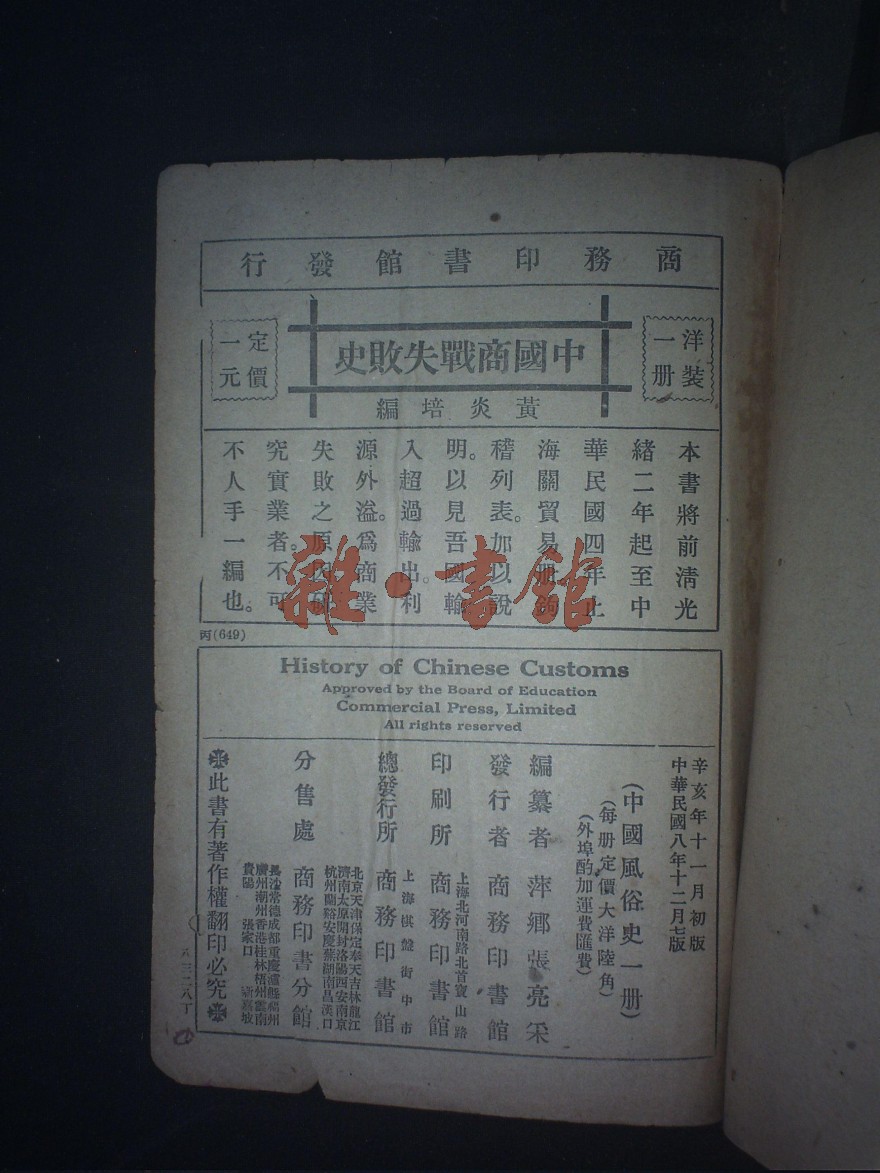 商務印書館發行
洋裝一册
中國商戰失敗史
黃炎培編
定價一元
本書將前淸光
緒二年起至中
華民國四年止
海關貿易册鉤
稽列表。加以說
明。以見吾國輸
入超過輸出。利
源外溢。爲商業
失敗之原因。研
究實業者。不可
不人手一編也。
丙(649)
History of Chinese Customs
Approved by the Board of Education
Commercial Press, Limited
All rights reserved
辛亥年十一月初版
中華民國八年十二月七版
(中國風俗史一册)
(每册定價大洋陸角)
(外埠酌加運費匯費)
編纂者 萍鄉張亮采
發行者 商務印書館
印刷所 上海北河南路北首寶山路 商務印書館
總發行所 上海棋盤街中市 商務印書館
分售處 商務印書分館
北京天津保定奉天吉林龍江
濟南太原開封洛陽西安南京
杭州蘭谿安慶蕪湖南昌漢口
長沙常德成都重慶瀘縣福州
廣州潮州香港桂林梧州雲南
貴陽 張家口 新嘉坡
※此書有著作權翻印必究※
雜·書館